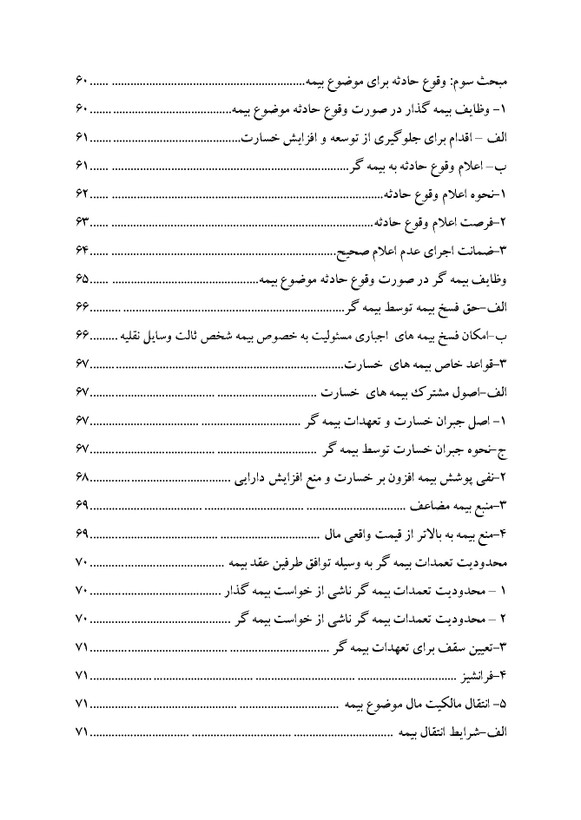 مبحث سوم: وقوع حادثه برای موضوع بیمه................................................................ ...... ۶۰
۱- وظایف بیمه گذار در صورت وقوع حادثه موضوع بیمه............................................. ۶۰
الف – اقدام برای جلوگیری از توسعه و افزایش خسارت............................................. ۶۱
ب– اعلام وقوع حادثه به بیمه گر................................................................ ...... ۶۱
۱-نحوه اعلام وقوع حادثه................................................................ ...... ۶۲
۲-فرصت اعلام وقوع حادثه................................................................ ...... ۶۳
۳-ضمانت اجرای عدم اعلام صحیح................................................................ ...... ۶۴
وظایف بیمه گر در صورت وقوع حادثه موضوع بیمه............................................. ...... ۶۵
الف-حق فسخ بیمه توسط بیمه گر................................................................ .......... ۶۶
ب-امکان فسخ بیمه های اجباری مسئولیت به خصوص بیمه شخص ثالت وسایل نقلیه ......... ۶۶
۳-قواعد خاص بیمه های خسارت................................................................ ۶۷
الف-اصول مشترک بیمه های خسارت ................................ ................................ ۶۷
۱- اصل جبران خسارت و تعهدات بیمه گر ................................ ................................ ۶۷
ج-نحوه جبران خسارت توسط بیمه گر ................................ ................................ ۶۷
۲-نفی پوشش بیمه افزون بر خسارت و منع افزایش دارایی ............................................. ۶۸
۳-منبع بیمه مضاعف ................................ ................................ ................................ ۶۹
۴-منع بیمه به بالاتر از قیمت واقعی مال ................................ ................................ ۶۹
محدودیت تعمدات بیمه گر به وسیله توافق طرفین عقد بیمه ............................................. ۷۰
۱ – محدودیت تعمدات بیمه گر ناشی از خواست بیمه گذار ............................................. ۷۰
۲ – محدودیت تعمدات بیمه گر ناشی از خواست بیمه گر ............................................. ۷۰
۳-تعیین سقف برای تعهدات بیمه گر ................................ ................................ ۷۱
۴-فرانشیز ................................ ................................ ................................ ۷۱
۵- انتقال مالکیت مال موضوع بیمه ................................ ................................ ۷۱
الف-شرایط انتقال بیمه ................................ ................................ ................................ ۷۱